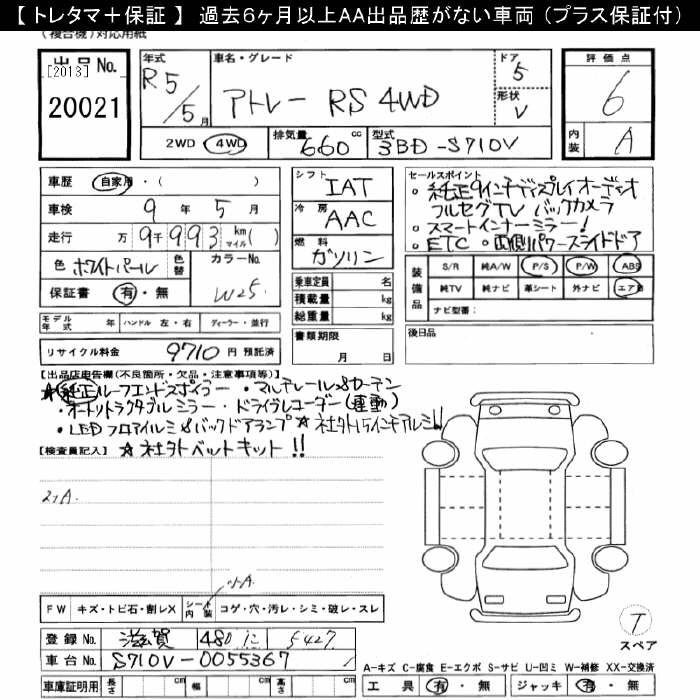 【 トレタマ＋保証 】 過去6ヶ月以上AA出品歴がない車両 (プラス保証付)
(複合機)対応用紙
出品No.
[2013]
20021
年式
R5/5月
車名・グレード
アトレー RS 4WD
ドア
5
形状
V
2WD 4WD
排気量
660 cc
型式
3BD-S710V
評価点
6
内装
A
車歴 自家用・( )
車検 9年 5月
走行 万 9千993 km マイル ( )
色 ホワイトパール 色替
カラーNo.
W25
保証書 有・無
シフト
IAT
冷房
AAC
燃料
ガソリン
乗車定員 名
積載量 kg
総重量 kg
書類期限
月 日
セールスポイント
・純正9インチディスプレイオーディオ
フルセグTV バックカメラ
・スマートインナーミラー!
・ETC ・両側パワースライドドア
装備品
S/R 純A/W P/S P/W ABS
純TV 純ナビ 革シート 外ナビ エアB
ナビ型番:
後日品
モデル年式 年 ハンドル 左・右 ディーラー・並行
リサイクル料金 9710 円 預託済
【出品店申告欄(不良箇所・欠品・注意事項等)】
☆純正ルーフエンドスポイラー・マルチレール&カーテン
・オートリトラクタブルミラー・ドライブレコーダー(連動)
・LED フロアイルミ&バックドアランプ ☆社外15インチアルミ!!
☆社外ベットキット!!
【検査員記入】
FW キズ・トビ石・割レX シート内装 コゲ・穴・汚レ・シミ・破レ・スレ
登録No. 滋賀 480 に 5427
車台No. S710V-0055367
車庫証明用 長さ cm 幅 cm 高さ cm
T
スペア
A-キズ C-腐食 E-エクボ S-サビ U-凹ミ W-補修 XX-交換済
工具 有・無 ジャッキ 有・無